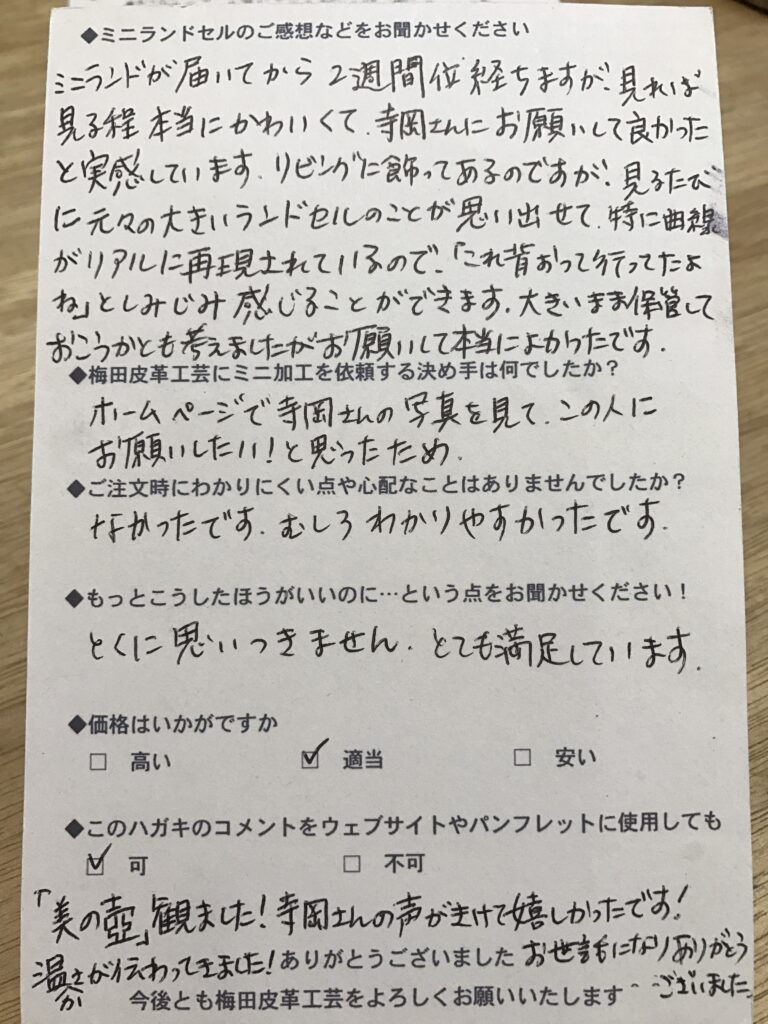 ◆ミニランドセルのご感想などをお聞かせください
ミニランドが届いてから2週間位経ちますが、見れば
見る程本当にかわいくて、寺岡さんにお願いして良かった
と実感しています。リビングに飾ってあるのですが、見るたび
に元々の大きいランドセルのことが思い出せて、特に曲線
がリアルに再現されているので、「これ背おって行ってたよ
ね」としみじみ感じることができます。大きいまま保管して
おこうかとも考えましたがお願いして本当によかったです。
◆梅田皮革工芸にミニ加工を依頼する決め手は何でしたか？
ホームページで寺岡さんの写真を見て、この人に
お願いしたい！と思ったため。
◆ご注文時にわかりにくい点や心配なことはありませんでしたか？
なかったです。むしろわかりやすかったです。
◆もっとこうしたほうがいいのに…という点をお聞かせください！
とくに思いつきません。とても満足しています。
◆価格はいかがですか
□ 高い ☑ 適当 □ 安い
◆このハガキのコメントをウェブサイトやパンフレットに使用しても
☑ 可 □ 不可
「美の壺」観ました！寺岡さんの声がきけて嬉しかったです！
温かさが伝わってきました！ありがとうございました お世話になりありがとう
今後とも梅田皮革工芸をよろしくお願いいたします ございました。